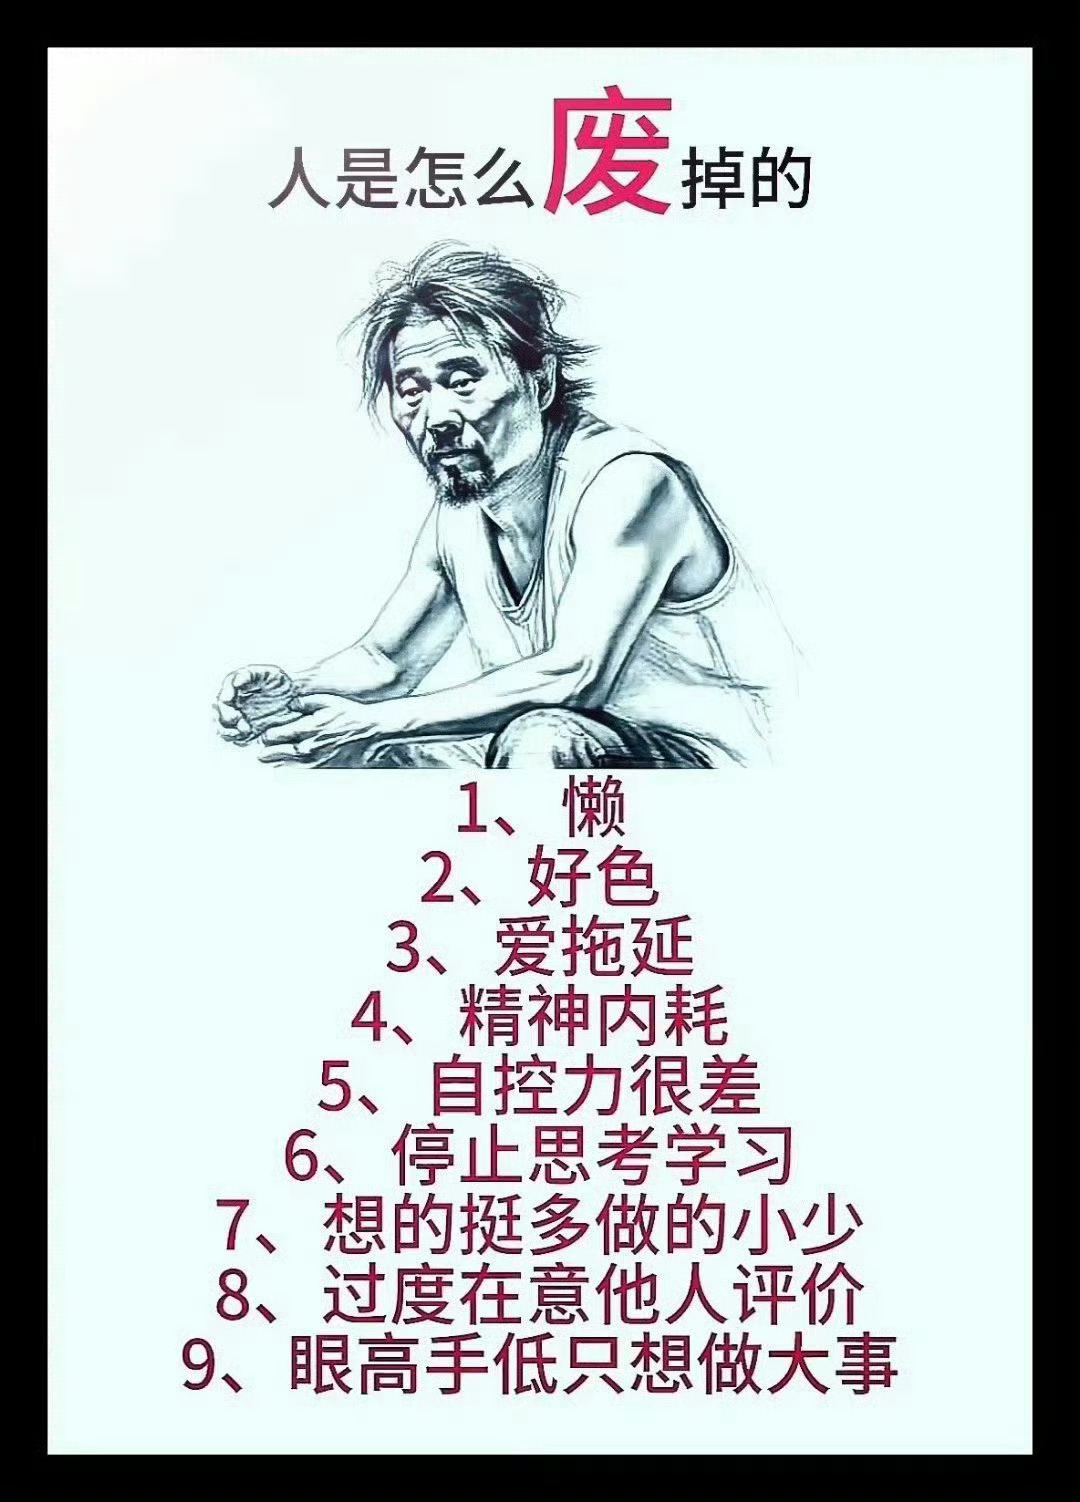 人是怎么废掉的
1、懒
2、好色
3、爱拖延
4、精神内耗
5、自控力很差
6、停止思考学习
7、想的挺多做的小少
8、过度在意他人评价
9、眼高手低只想做大事